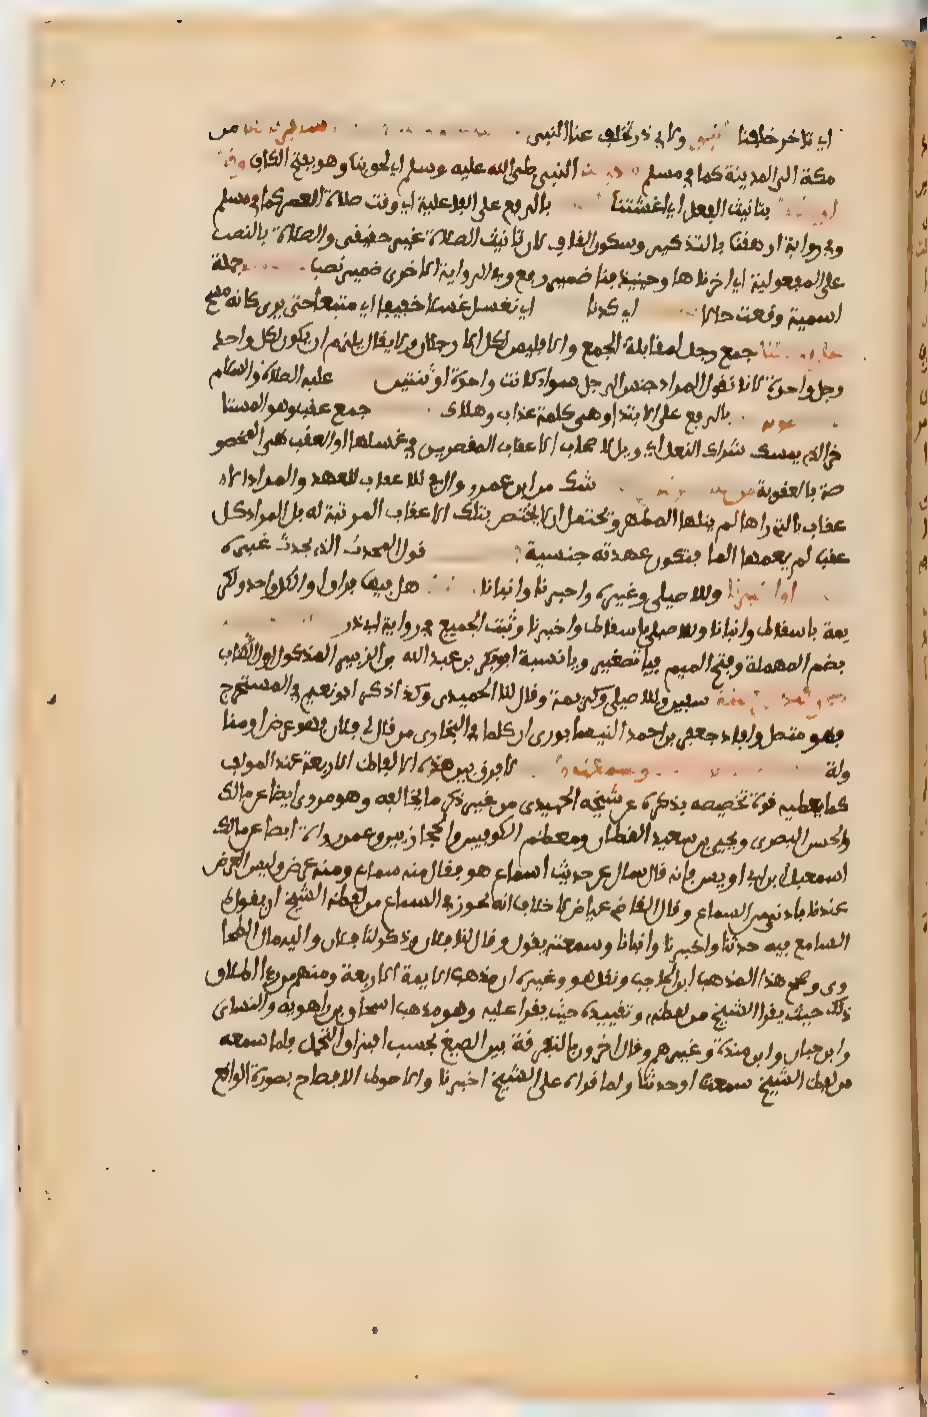 اي تاخر خلفنا ولابي ذر تخلف عنا النبي من
مكة الى المدينة كما في مسلم النبي صلى الله عليه وسلم اي لحق بنا وهو بفتح الكاف
بتانيث الفعل اي اغشتنا بالرفع على الفاعلية اي وقت صلاة العصر كما في مسلم
وفي رواية ارهقنا بالتذكير وسكون القاف لان تانيث الصلاة غير حقيقي والصلاة بالنصب
على المفعولية اي اخرناها وحينئذ فنا ضمير رفع وفي الرواية الاخرى ضمير نصب جملة
اسمية وقعت حالا اي كدنا اي نغسل غسلا خفيفا اي متبعا حتى يرى كانه مسح
جمع رجل لمقابلة الجمع والا فليس لكل الا رجلان ولا يقال يلزم ان يكون لكل واحد
رجل واحدة لانا نقول المراد جنس الرجل سواء كانت واحدة او ثنتين عليه الصلاة والسلام
بالرفع على الابتداء وهي كلمة عذاب وهلاك جمع عقب وهو المستا
خر الذي يمسك شراك النعل اي ويل لاصحاب الاعقاب المقصرين في غسلها او العقب هي المخصو
صة بالعقوبة شك من ابن عمرو وال في الاعقاب للعهد والمراد الا
عقاب التي راها لم ينلها المطهر ويحتمل ان لا يختص بتلك الاعقاب المرئية له بل المراد كل
عقب لم يعمها الما فتكون عهدته جنسية قول المحدث الذي يحدث غيره
وللاصيلي وغيره واخبرنا وانبانا هل بينهما فرق او الكل واحد ولكر
يمة باسقاط وانبانا وللاصيلي باسقاط واخبرنا وثبت الجميع في رواية ابي ذر
بضم المهملة وفتح الميم فيا تصغير ويا نسبة ابو بكر بن عبد الله بن الزبير المذكور اول الكتاب
وللاصيلي وكريمة وقال لنا الحميدي وكذا ذكره ابو نعيم في المستخرج
فهو متصل وافاد جعفر بن احمد النيسابوري ان كلما في البخاري من قال لي فلان فهو عرض او منا
ولة لا فرق بين هذه الالفاظ الاربعة عند المولف
كما يعطيه قوة تخصيصه بذكره عن شيخه الحميدي من غير ذكر ما يخالفه وهو مروي ايضا عن مالك
والحسن البصري ويحيى بن سعيد القطان ومعظم الكوفيين والحجازيين وممن رواه ايضا عن مالك
اسمعيل بن ابي اويس فانه قال سال عن حديث اسماع هو فقال منه سماع ومنه عرض وليس العرض
عندنا بادنى من السماع وقال القاضي عياض لا خلاف انه يجوز في السماع من لفظ الشيخ ان يقول
السامع فيه حدثنا واخبرنا وانبانا وسمعته يقول وقال لنا فلان وذكر لنا فلان واليه مال الطحا
وي وصحح هذا المذهب ابن الحاجب ونقل هو وغيره ان مذهب الايمة الاربعة ومنهم من راى اطلاق
ذلك حيث يقرا الشيخ من لفظه وتقييده حيث يقرا عليه وهو مذهب اسحاق بن راهويه والنساي
وابن حبان وابن مندة وغيرهم وقال اخرون بالتفرقة بين الصيغ بحسب افتراق التحمل فلما سمعه
من لفظ الشيخ سمعت او حدثنا ولما قراه على الشيخ اخبرنا والاحوط الافصاح بصورة الواقع